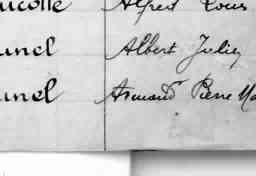 ucotte Alfred Louis
unel Albert Jules
unel Armand Pierre Ma